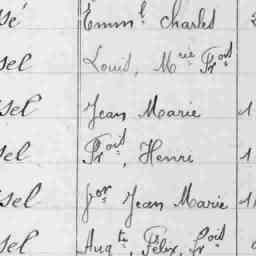 sé Emm.l Charles
sel Louis, M.rie Fr.ois
sel Jean Marie 1
el Fr.ois, Henri 1
sel Jean Marie 1
sel Aug.te, Félix, Fr.ois